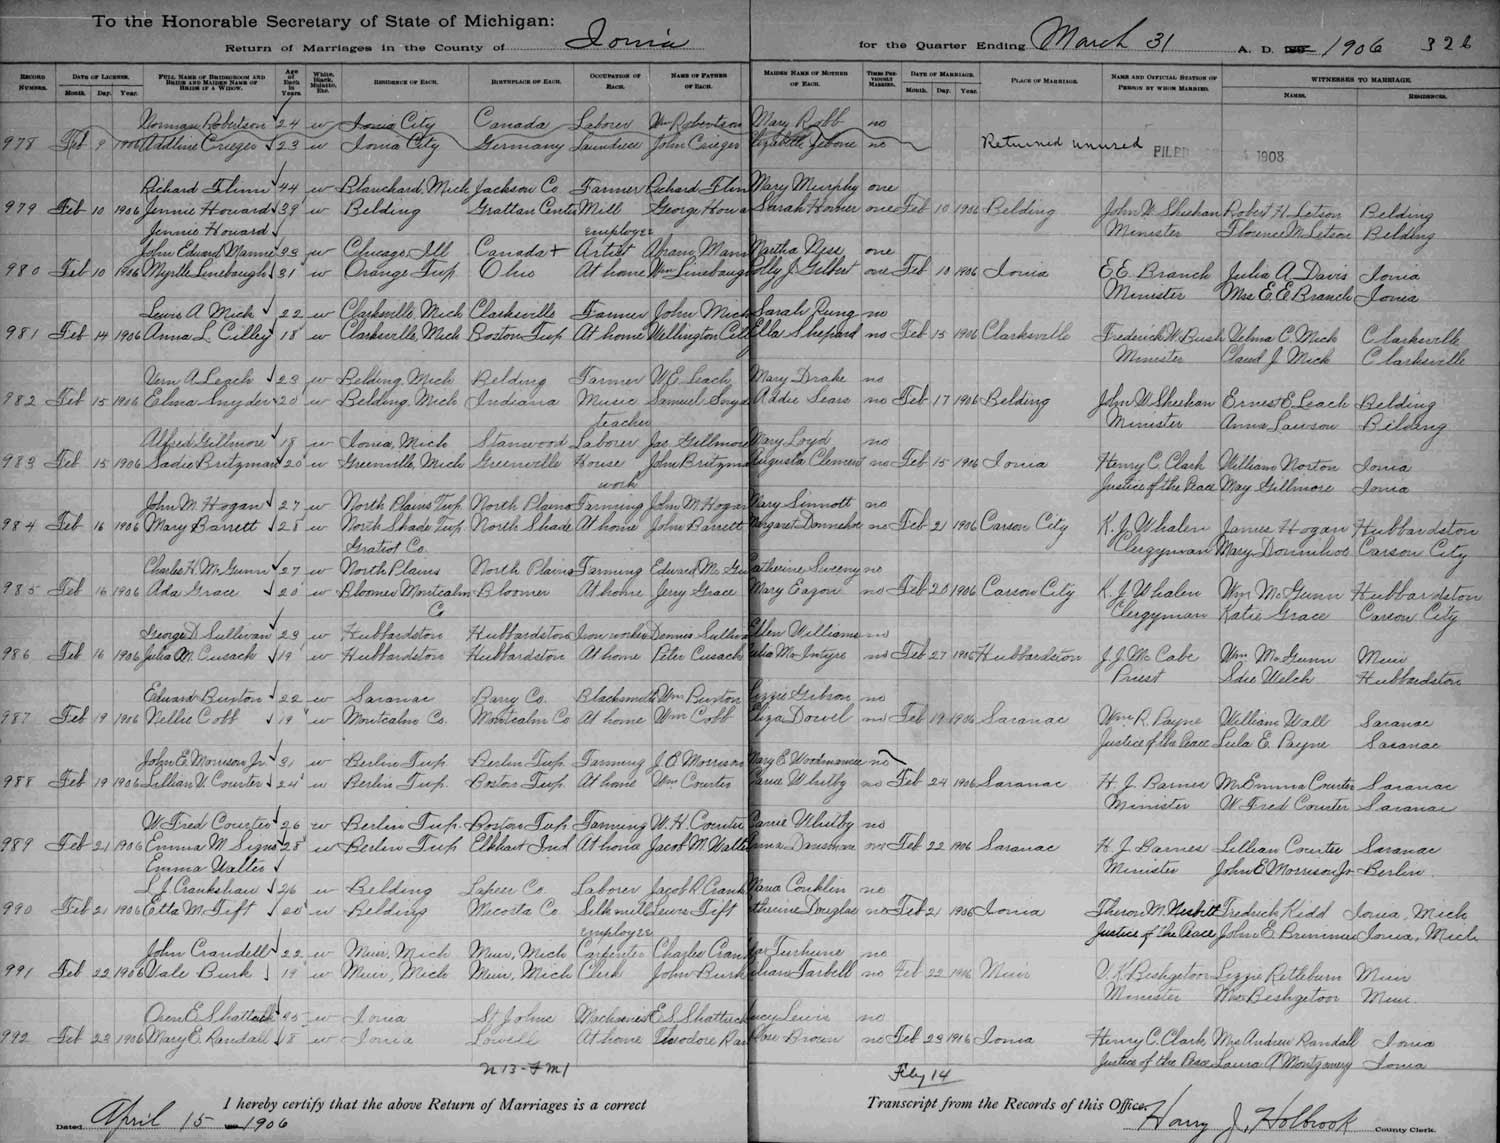 To the Honorable Secretary of State of Michigan:
Return of Marriages in the County of Ionia for the Quarter Ending March 31 A. D. 1906 326
RECORD NUMBER. DATE OF LICENSE. Month. Day. Year. FULL NAME OF BRIDEGROOM AND BRIDE AND MAIDEN NAME OF BRIDE IF A WIDOW. Age of Each in Years. White, Black, Mulatto, Etc. RESIDENCE OF EACH. BIRTHPLACE OF EACH. OCCUPATION OF EACH. NAME OF FATHER OF EACH. MAIDEN NAME OF MOTHER OF EACH. TIMES PREVIOUSLY MARRIED. DATE OF MARRIAGE. Month. Day. Year. PLACE OF MARRIAGE. NAME AND OFFICIAL STATION OF PERSON BY WHOM MARRIED. WITNESSES TO MARRIAGE. NAMES. RESIDENCES.
Norman Robertson 24 w Ionia City Canada Laborer Wm Robertson Mary Robb no
978 Feb 9 1906 Adeline Crieger 23 w Ionia City Germany Laundress John Crieger Elizabeth no Returned unused FILED 1908
Richard Flinn 44 w Blanchard, Mich Jackson Co Farmer Richard Flin Mary Murphy one
979 Feb 10 1906 Jennie Howard 39 w Belding Grattan Center Mill George Howa Sarah Homer one Feb 10 1906 Belding John W Sheehan Robert H. Letson Belding
Jennie Howard employee Minister Florence M Letson Belding
John Edward Mannie 33 w Chicago, Ill Canada Artist Abram Mann Martha Nyse one
980 Feb 10 1906 Myrtle Linebaugh 31 w Orange Twp. Ohio At home Wm Linebaugh Polly J Gilbert one Feb 10 1906 Ionia E.E. Branch Julia A. Davis Ionia
Minister Mrs E.E. Branch Ionia
Lewis A Mick 22 w Clarksville, Mich Clarksville Farmer John Mick Sarah Rung no
981 Feb 14 1906 Anna L Cilley 18 w Clarksville, Mich Boston Twp At home Wellington Cill Ella Shepard no Feb 15 1906 Clarksville Frederick W. Bush Velma C. Mick Clarksville
Minister Claud J. Mick Clarksville
Vern A Leach 23 w Belding, Mich Belding Farmer W.E. Leach Mary Drake no
982 Feb 15 1906 Elma Snyder 20 w Belding, Mich Indiana Music Samuel Snyd Addie Sears no Feb 17 1906 Belding John W Sheehan Ernest E. Leach Belding
teacher Minister Anna Lawson Belding
Alfred Gillmore 18 w Ionia, Mich Stanwood Laborer Jas. Gillmore Mary Loyd no
983 Feb 15 1906 Sadie Britzman 20 w Greenville, Mich Greenville House John Britzma Augusta Clement no Feb 15 1906 Ionia Henry C. Clark William Norton Ionia
work Justice of the Peace May Gillmore Ionia
John M. Hogan 27 w North Plains Twp. North Plains Farming John M Hogan Mary Sinnott no
984 Feb 16 1906 Mary Barrett 28 w North Shade Twp North Shade At home John Barrett Margaret Donnehoe no Feb 21 1906 Carson City K. J. Whalen James Hogan Hubbardston
Gratiot Co. Clergyman Mary Carson City
Charles H. McGunn 27 w North Plains North Plains Farming Edward Mc Gu Catherine Sweeny no
985 Feb 16 1906 Ada Grace 20 w Bloomer Montcalm Bloomer At home Jerry Grace Mary Eagon no Feb 20 1906 Carson City K. J Whalen Wm McGunn Hubbardston
Co Clergyman Katie Grace Carson City
George D Sullivan 29 w Hubbardston Hubbardston Iron worker Dennis Sulliva Ellen Williams no
986 Feb 16 1906 Julia M. Cusack 19 w Hubbardston Hubbardston At home Peter Cusack Julia McIntyre no Feb 27 1906 Hubbardston J. J. Mc Cabe Wm McGunn Muir
Priest Sdie Welch Hubbardston
Edward Buxton 22 w Saranac Barry Co. Blacksmith Wm Buxton Lizzie Gibson no
987 Feb 19 1906 Nellie Cobb 19 w Montcalm Co. Montcalm Co At home Wm Cobb Eliza Dowel no Feb 19 1906 Saranac Wm R. Payne William Wall Saranac
Justice of the Peace Lula E. Payne Saranac
John E. Morrison Jr 31 w Berlin Twp. Berlin Twp. Farming J. E Morrison Mary E Woodmancee no
988 Feb 19 1906 Lillian V. Courter 24 w Berlin Twp. Boston Twp. At home Wm Courter Carrie Whitby no Feb 24 1906 Saranac H. J. Barnes Mr Emma Courter Saranac
Minister W. Fred Courter Saranac
W Fred Courter 26 w Berlin Twp. Boston Twp. Farming W. H. Courter Carrie Whitby no
989 Feb 21 1906 Emma M. Signs 28 w Berlin Twp Elkhart Ind At home Jacob M Walte Anna Dausman one Feb 22 1906 Saranac H. J. Barnes Lillian Courter Saranac
Emma Walter Minister John E Morrison Jr Berlin.
L J. Crankshaw 26 w Belding Lapeer Co. Laborer Jacob R Crank Maria Conklin no
990 Feb 21 1906 Etta M. Tift 20 w Belding Mecosta Co. Silk mill Lewis Tift Catherine Douglas no Feb 21 1906 Ionia Theron M. Nesbitt Fredrick Kidd Ionia, Mich
employee Justice of the Peace John E. Ionia, Mich
John Crandell 22 w Muir, Mich Muir, Mich Carpenter Charles Cran Terhune no
991 Feb 22 1906 Vale Burk 19 w Muir, Mich Muir, Mich Clerk John Burk Lilian Tarbell no Feb 22 1906 Muir V. K Beshgetoor Lizzie Retleburn Muir
Minister Mrs Beshgetoor Muir
Oren E. Shattuck 35 w Ionia St Johns Machinist E.S. Shattuck Lucy Lewis no
992 Feb 23 1906 Mary E. Randall 18 w Ionia Lowell At home Theodore Ran Rose Brown no Feb 23 1906 Ionia Henry C. Clark Mrs Andrew Randall Ionia
Justice of the Peace Laura A Montgomery Ionia
N 13 - F M 1 Feby 14
I hereby certify that the above Return of Marriages is a correct Transcript from the Records of this Office.
Dated April 15 1906 Harry J. Holbrook County Clerk.